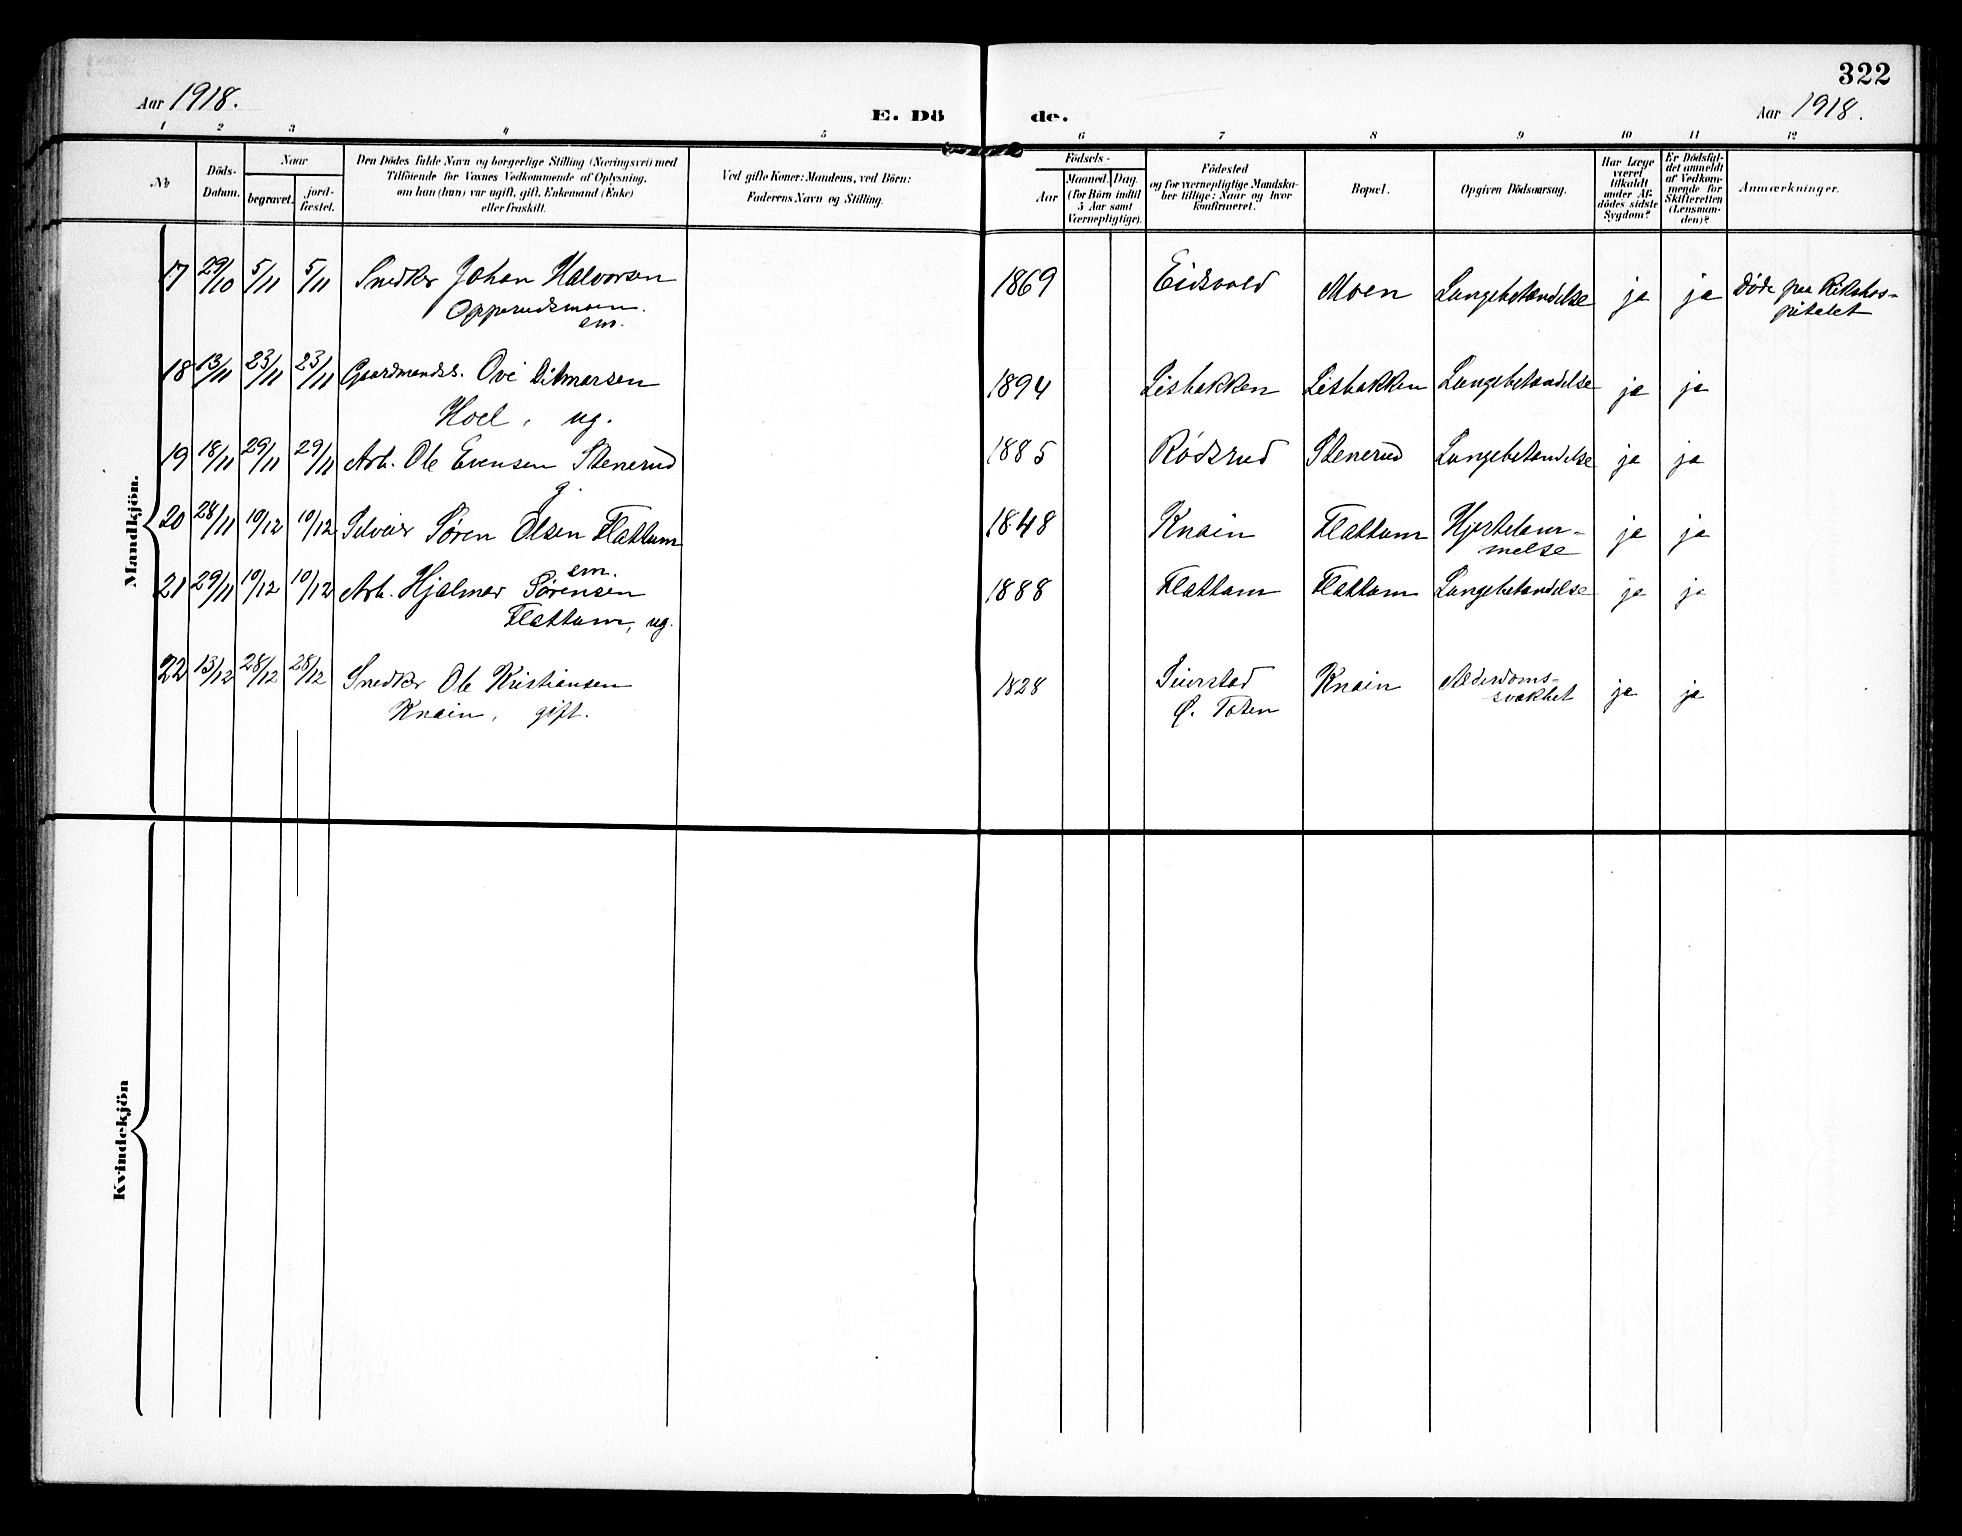 322
Aar 1918.
E. Dö
de.
Aar 1918.
1 2 3 4 5 6 7 8 9 10 11 12
No
Döds-
Datum.
Naar
begravet.
jord-
fæstet.
Den Dödes fulde Navn og borgerlige Stilling (Næringsvei) med
Tilföiende for Voxnes Vedkommende af Oplysning,
om han (hun) var ugift, gift, Enkemand (Enke)
eller fraskilt.
Ved gifte Koner: Mandens, ved Börn:
Faderens Navn og Stilling.
Födsels-
Aar
Maaned. Dag.
(for Börn indtil
5 Aar samt
Værnepligtige).
Födested
og for værnepligtige Mandska-
ber tillige: Naar og hvor
konfirmeret.
Bopæl.
Opgiven Dödsaarsag.
Har Læge
været
tilkaldt
under Af-
dödes sidste
Sygdom?
Er Dödsfal-
det anmeldt
af Vedkom-
mende for
Skifteretten
(Lensman-
den)?
Anmærkninger.
Mandkjön.
17 29/10 5/11 5/11 Snedker Johan Halvorsen 1869 Eidsvold Moen Lungebetændelse ja ja Døde paa Rikshos-
Opperudsmoen. pitalet
em.
18 13/11 23/11 23/11 Gaardmands. Ove Ditmarsen 1894 Lisbakken Lisbakken Lungebetændelse ja ja
Hoel, ug.
19 18/11 29/11 29/11 Arb. Ole Evensen Stenerud 1885 Rødsrud Stenerud Lungebetændelse ja ja
g.
20 28/11 10/12 10/12 Selveier Søren Olsen Flattum 1848 Knain Flattum Hjertelam-
melse ja ja
em.
21 29/11 10/12 10/12 Arb. Hjalmar Sørensen 1888 Flattum Flattum Lungebetændelse ja ja
Flattum, ug.
22 13/12 28/12 28/12 Snedker Ole Kristiansen 1828 Seierstad Knain Alderdoms-
Knain, gift. Ø. Toten svakhet ja ja
Kvindekjön